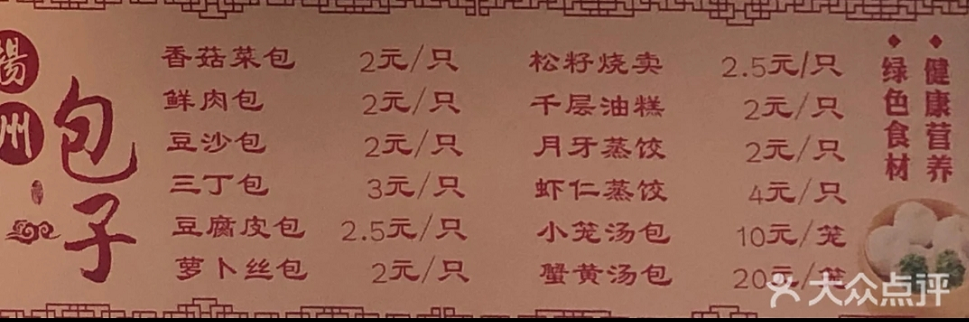 揚州
包子
香菇菜包 2元/只
鲜肉包 2元/只
豆沙包 2元/只
三丁包 3元/只
豆腐皮包 2.5元/只
萝卜丝包 2元/只
松籽烧卖 2.5元/只
千层油糕 2元/只
月牙蒸饺 2元/只
虾仁蒸饺 4元/只
小笼汤包 10元/笼
蟹黄汤包 20元/笼
健康营养
绿色食材
大众点评